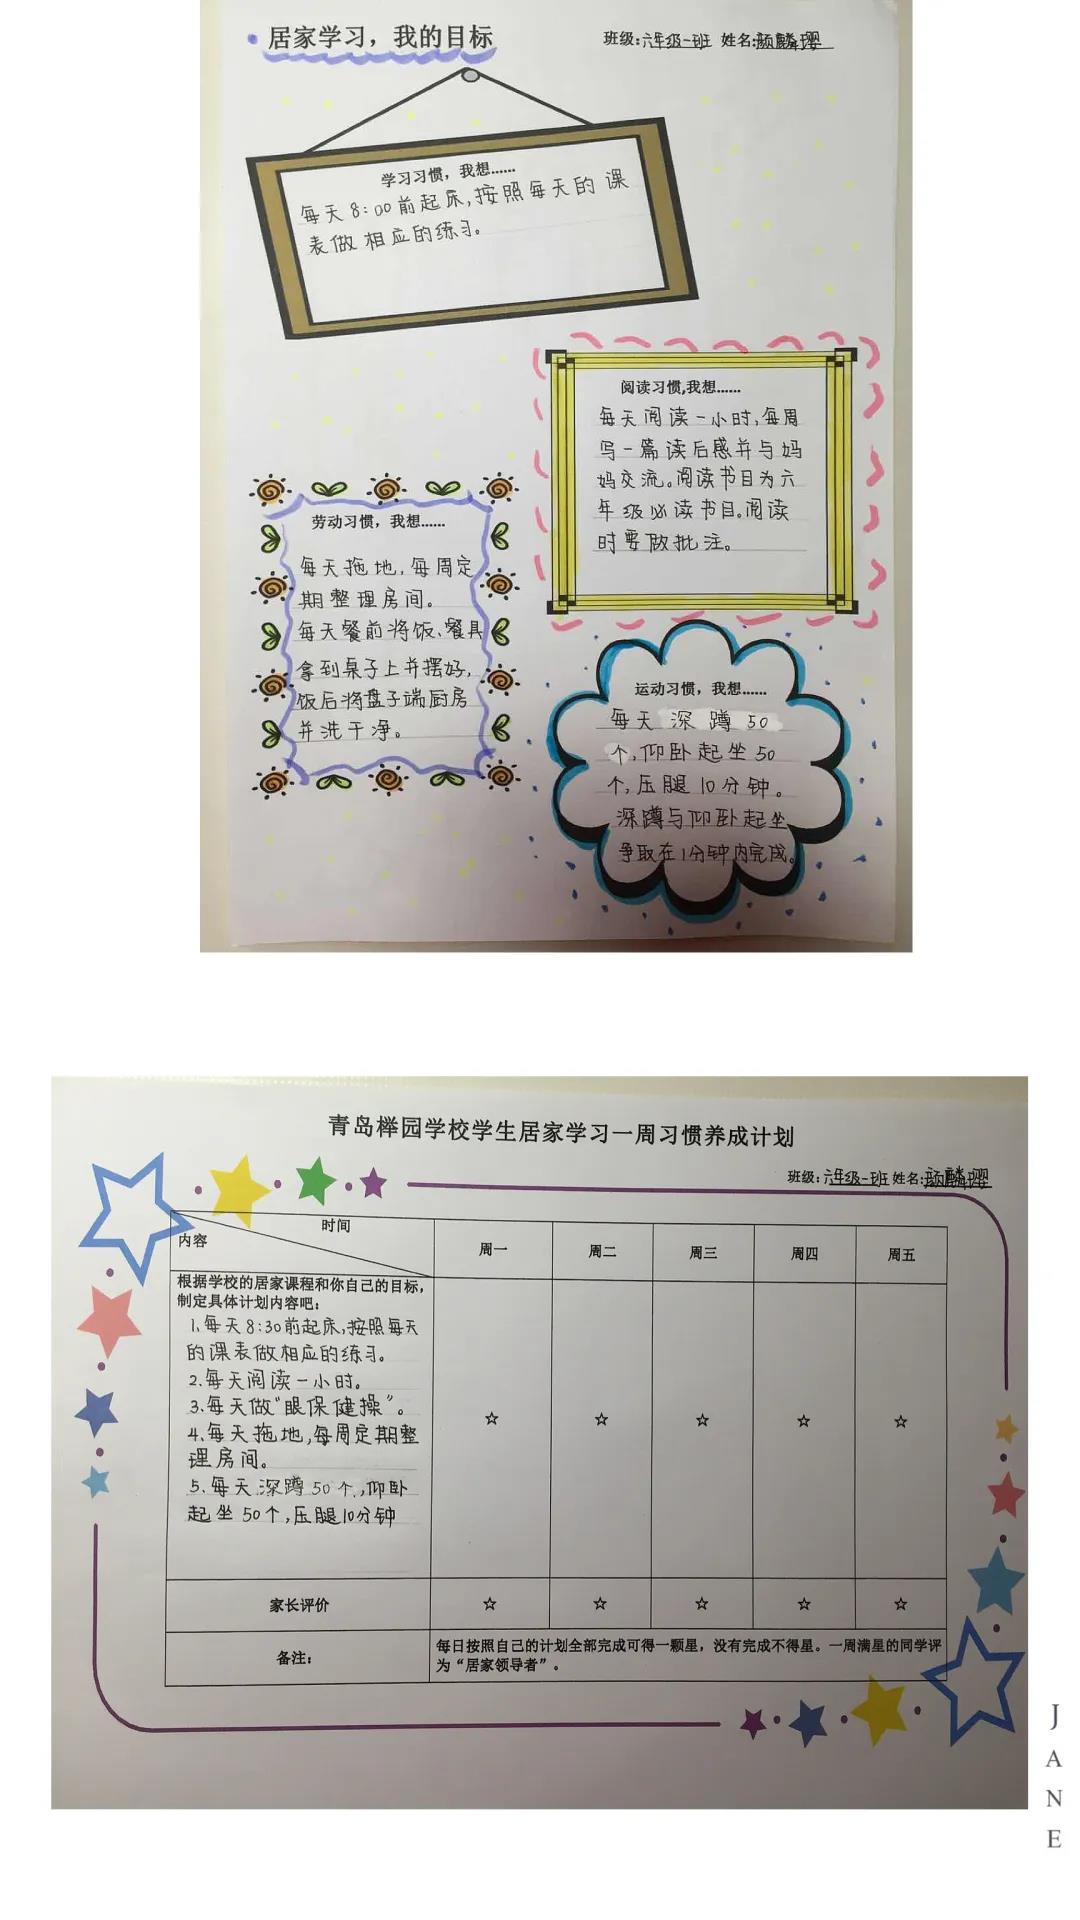 居家学习，我的目标
班级:六年级一班 姓名:颜麟璎
学习习惯，我想……
每天8:00前起床,按照每天的课
表做相应的练习。
阅读习惯,我想……
每天阅读一小时,每周
写一篇读后感并与妈
妈交流。阅读书目为六
年级必读书目。阅读
时要做批注。
劳动习惯，我想……
每天拖地,每周定
期整理房间。
每天餐前将饭、餐具
拿到桌子上并摆好,
饭后将盘子端厨房
并洗干净。
运动习惯，我想……
每天深蹲50
个,仰卧起坐50
个,压腿10分钟。
深蹲与仰卧起坐
争取在1分钟内完成。
青岛榉园学校学生居家学习一周习惯养成计划
班级:六年级一班 姓名:颜麟璎
时间
内容
周一 周二 周三 周四 周五
根据学校的居家课程和你自己的目标,
制定具体计划内容吧:
1.每天8:30前起床,按照每天
的课表做相应的练习。
2.每天阅读一小时。
3.每天做“眼保健操”。
4.每天拖地,每周定期整
理房间。
5.每天深蹲50个,仰卧
起坐50个,压腿10分钟
家长评价
备注:
每日按照自己的计划全部完成可得一颗星，没有完成不得星。一周满星的同学评
为“居家领导者”。
JANE